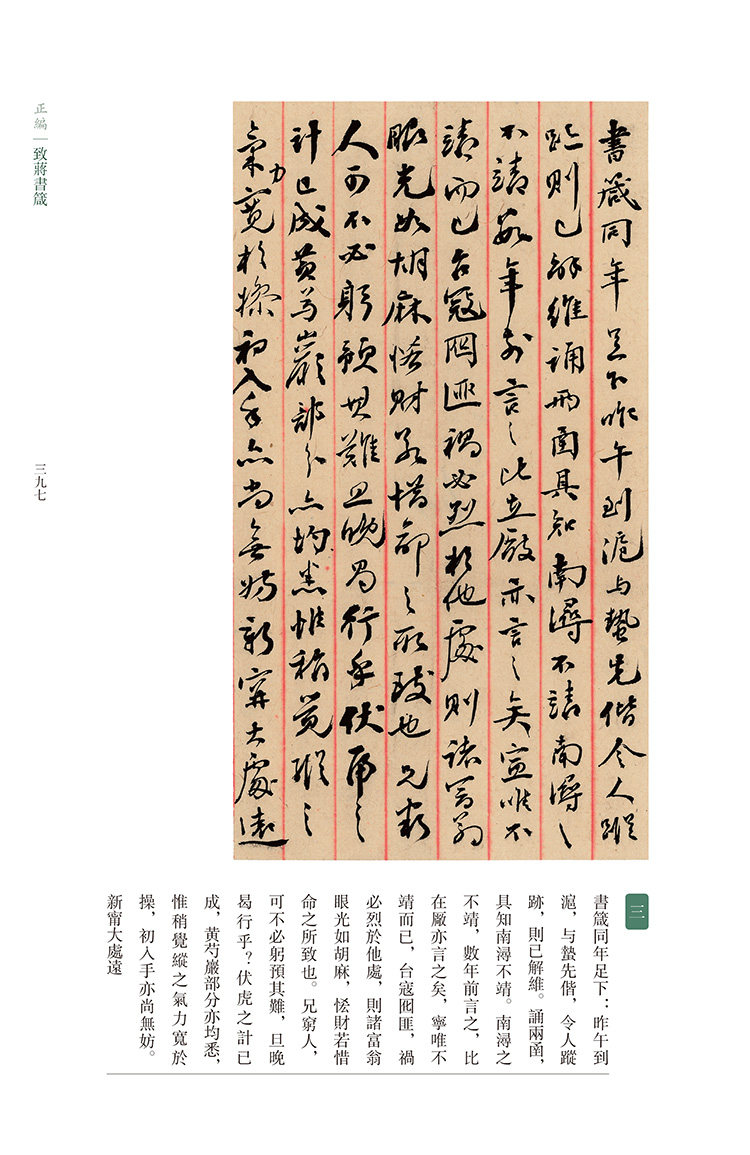 書箴同年足下昨午到滬与蟄先偕令人蹤
跡則已解維誦兩圅具知南潯不靖南潯之
不靖數年前言之比在厰亦言之矣寧唯不
靖而已台寇囮匪禍必烈於他處則諸富翁
眼光如胡麻恡財若惜命之所致也兄窮
人可不必躬預其難旦晚曷行乎伏虎之
計已成黃芍巖部分亦均悉惟稍覺縱之
氣力寬於操初入手亦尚無妨新甯大處遠
三
書箴同年足下：昨午到
滬，与蟄先偕，令人蹤
跡，則已解維。誦兩圅，
具知南潯不靖。南潯之
不靖，數年前言之，比
在厰亦言之矣，寧唯不
靖而已，台寇囮匪，禍
必烈於他處，則諸富翁
眼光如胡麻，恡財若惜
命之所致也。兄窮人，
可不必躬預其難，旦晚
曷行乎？伏虎之計已
成，黃芍巖部分亦均悉，
惟稍覺縱之氣力寬於
操，初入手亦尚無妨。
新甯大處遠
正編 | 致蔣書箴
三九七